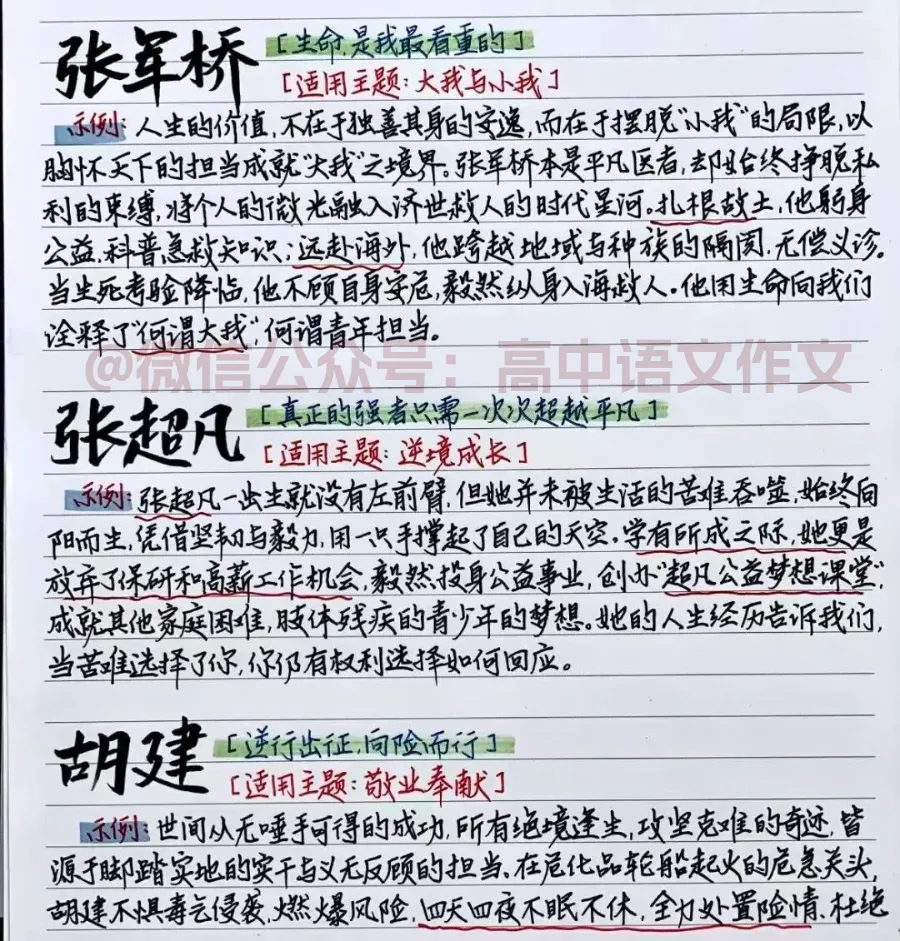 张军桥[生命,是我最看重的]
[适用主题:大我与小我]
示例:人生的价值,不在于独善其身的安逸,而在于摆脱“小我”的局限,以
胸怀天下的担当成就“大我”之境界。张军桥本是平凡医者,却始终挣脱私
利的束缚,将个人的微光融入济世救人的时代星河。扎根故土,他躬身
公益,科普急救知识;远赴海外,他跨越地域与种族的隔阂,无偿义诊。
当生死考验降临,他不顾自身安危,毅然纵身入海救人。他用生命向我们
诠释了“何谓大我”,何谓青年担当。
@微信公众号:高中语文作文
张超凡[真正的强者只需一次次超越平凡]
[适用主题:逆境成长]
示例:张超凡一出生就没有左前臂,但她并未被生活的苦难吞噬,始终向
阳而生,凭借坚韧与毅力,用一只手撑起了自己的天空。学有所成之际,她更是
放弃了保研和高薪工作机会,毅然投身公益事业,创办“超凡公益梦想课堂”,
成就其他家庭困难,肢体残疾的青少年的梦想。她的人生经历告诉我们,
当苦难选择了你,你仍有权利选择如何回应。
胡建[逆行出征,向险而行]
[适用主题:敬业奉献]
示例:世间从无唾手可得的成功,所有绝境逢生,攻坚克难的奇迹,皆
源于脚踏实地的实干与义无反顾的担当。在危化品轮船起火的危急关头,
胡建不惧毒气侵袭、燃爆风险,四天四夜不眠不休,全力处置险情、杜绝